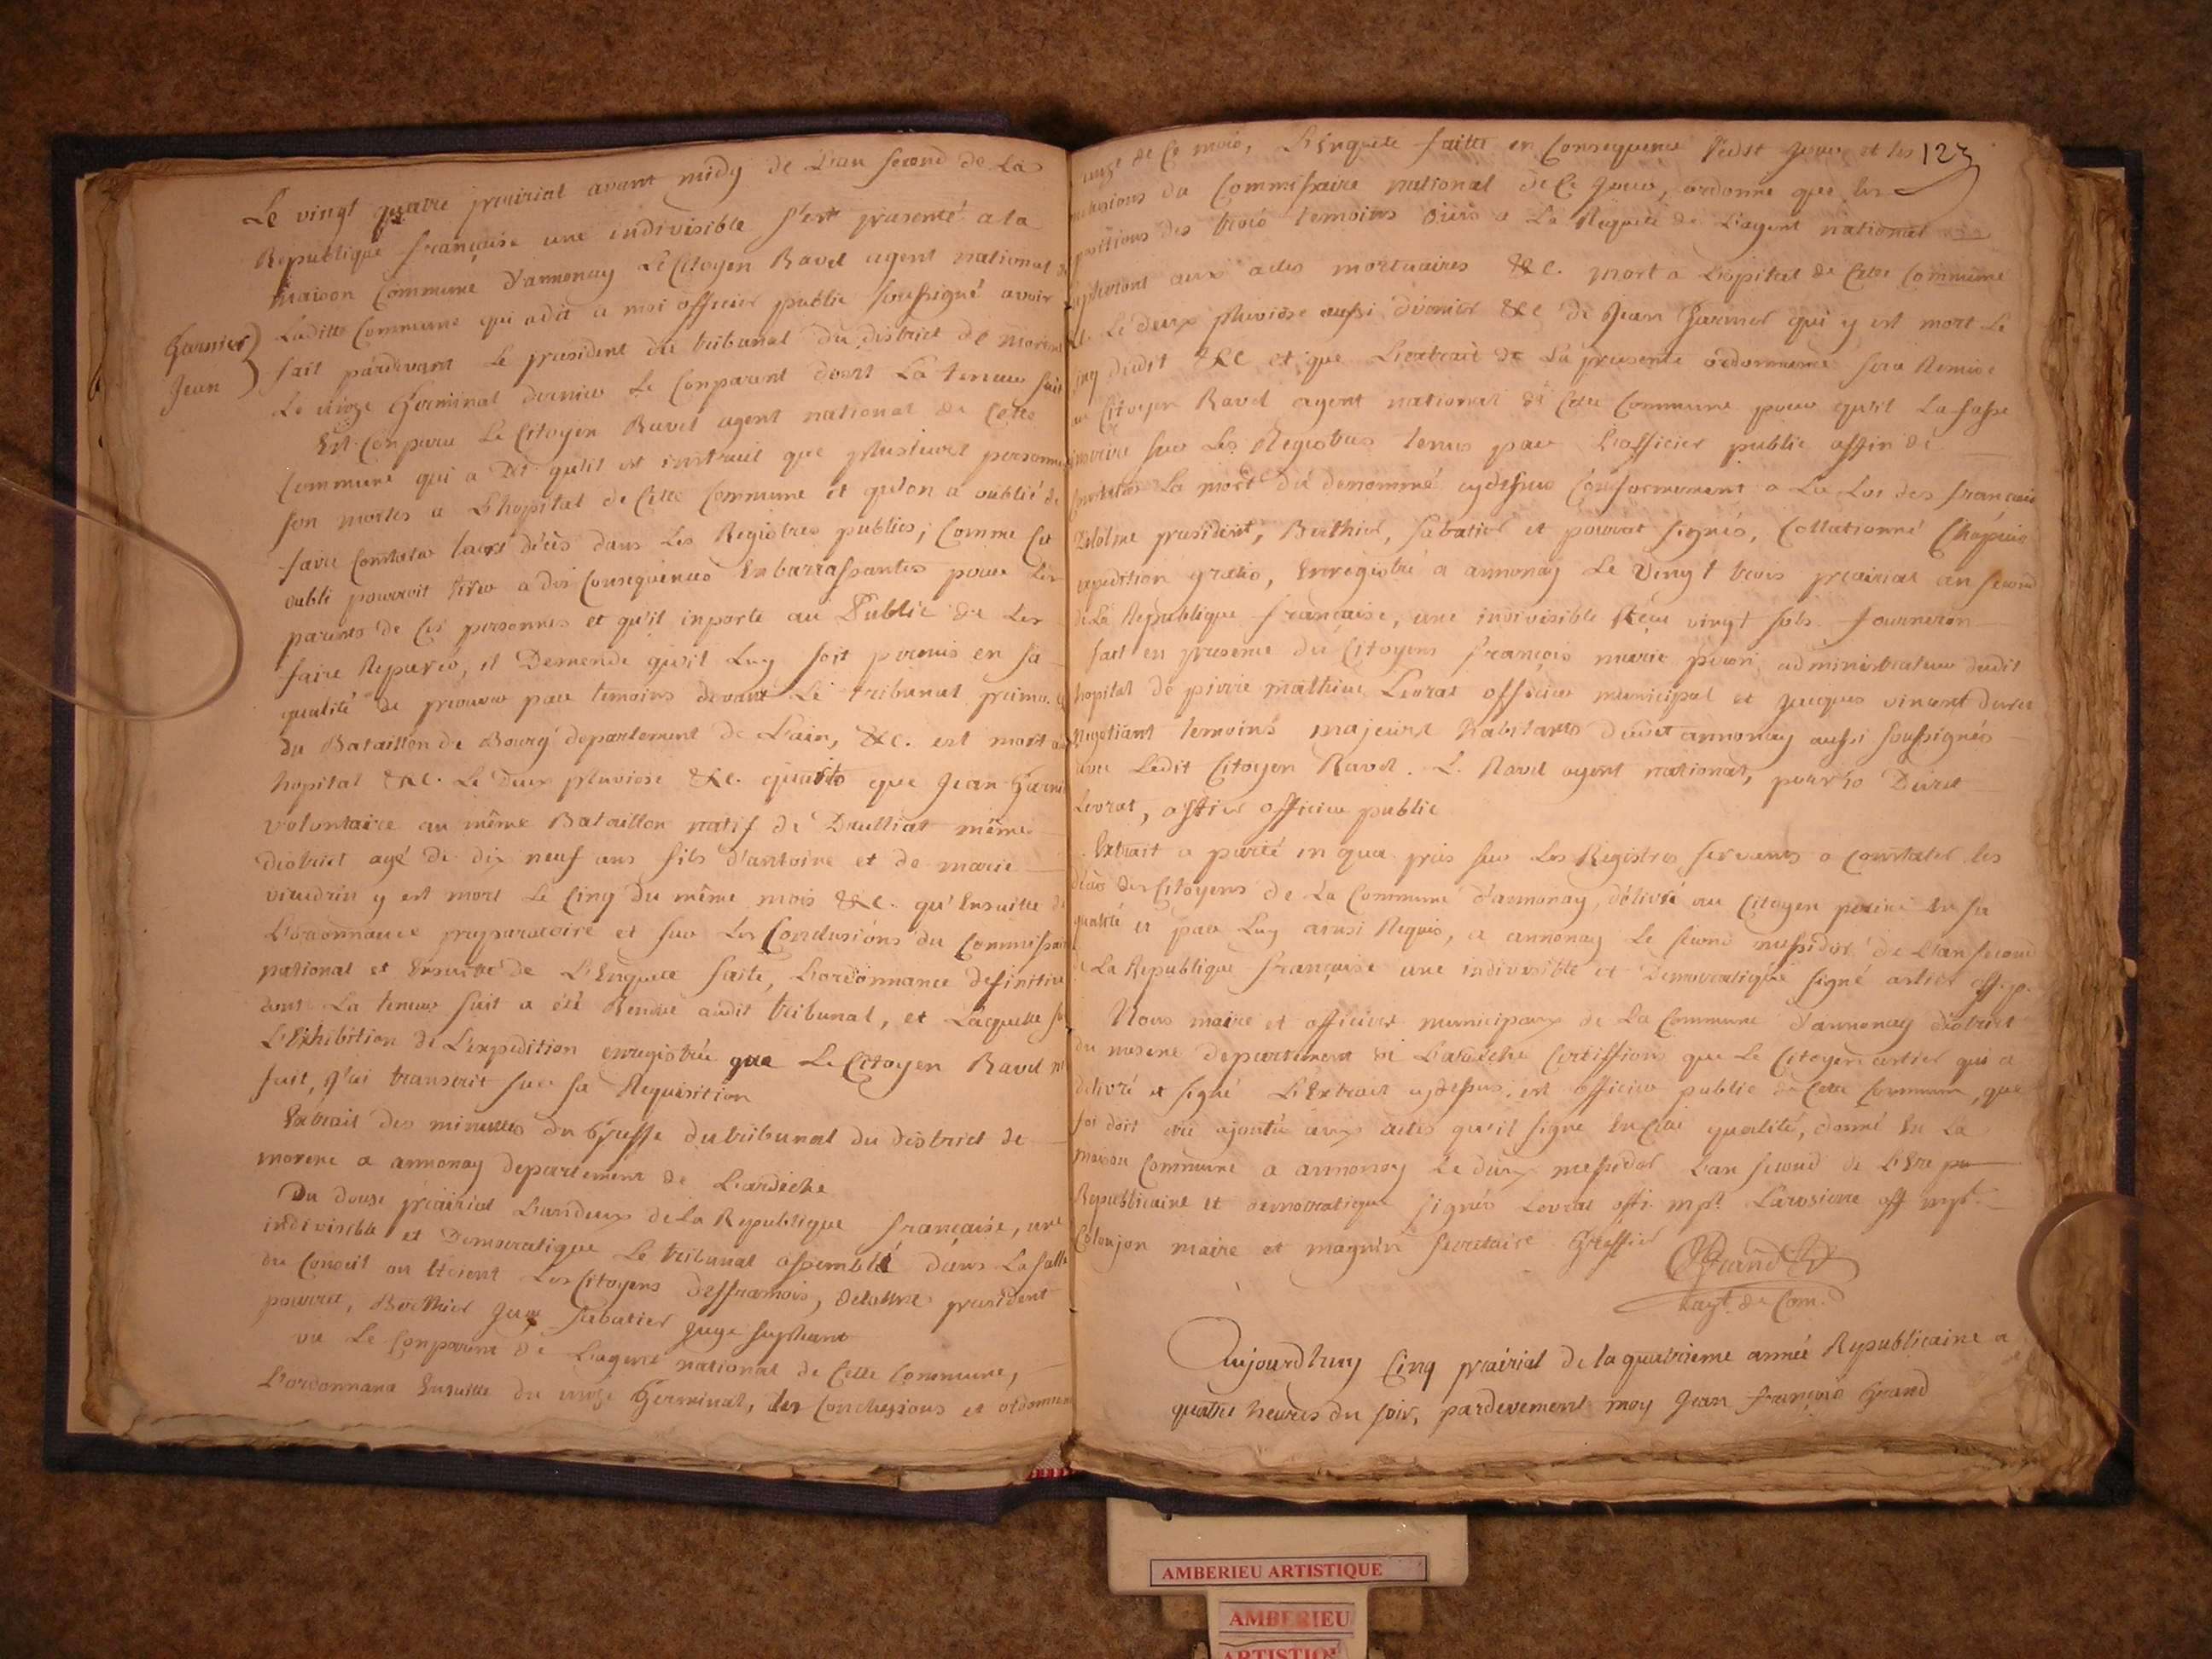 Le vingt quatre prairial avant midy de L'an second de La
Republique française une indivisible s'est presenté a la
maison Commune d'annonay Le Citoyen Ravel agent national de
Laditte Commune qui a dit a moi officier public soussigné avoir
Garnier
Jean
fait pardevant Le president du tribunal du district de
Le onze Germinal dernier Le Conparant dont La teneur suit
Est Conparu Le Citoyen Ravel agent national de Cette
Commune qui a Dit qu'il est instruit que plusieurs personnes
son mortes a L'hopital de Cette Commune et qu'on a oublié de
faire Constater leurs décès dans Les Registres publics; Comme Cet
oubli pourroit tirer a des Consequences Enbarrassantes pour Les
parents de Ces personnes et qu'il inporte au Public de Les
faire Reparer, il Demende qu'il Luy soit permis en sa
qualité de prouver par temoins devant Le tribunal primo.
du Bataillon de Bourg departement de L'ain, &c. est mort
hopital &c. Le deux pluviose &c. quarto que Jean Garnier
volontaire au même Bataillon natif de Druilliat même
district agé de dix neuf ans fils d'antoine et de marie
vieudrin y est mort Le Cinq du même mois &c. qu'Ensuitte de
L'ordonnance preparatoire et sur Les Conclusions du Commissaire
national et Ensuitte de L'Enquete faite, L'ordonnance definitive
dont La teneur suit a été Rendue audit tribunal, et Laquelle
L'Exhibition de L'expedition enregistrée que Le Citoyen Ravel m'
fait, j'ai transcrit sur sa Requisition
Extrait des minuttes du Greffe du tribunal du district de
a annonay departement de L'ardeche
Du douse prairial L'an deux de la Republique française, une
indivisible et Democratique Le tribunal assemblé dans La salle
du Conseil ou Etoient Les Citoyens desframois, president
Berthier Juge Sabatier Juge supleant
vu Le Conparant de L'agent national de Cette Commune,
L'ordonnance Ensuitte du onze Germinal, des Conclusions et ordonnance
onze de Ce mois, L'Enquete faitte en Consequence Ledit Jour et les 123
du Commissaire national de Ce Jour, ordonne que les
des trois temoins ouïs a La Requete de L'agent national
aux actes mortuaires &c. mort a L'hopital de Cette Commune
Le deux pluviose aussi dernier &c. de Jean Garnier qui y est mort Le
Cinq dudit &c et que L'extrait de La presente ordonnance sera Remise
au Citoyen Ravel agent national de Cette Commune pour qu'il La fasse
inscrire sur Les Registres tenus par L'officier public affin de
Constater La mort du denommé cydessus Conformement a La Loi des francais
president, Berthier, Sabatier et signés, Collationné Chapuis
expedition gratis, Enregistré a annonay Le Vingt trois prairial an second
de La Republique française, une indivisible Reçu vingt sols Tourneron
fait en presence du Citoyens françois marie administrateur dudit
hopital de pierre mathieu Levrat officier municipal et Jacques vincent Duret
Negotiant temoins majeurs habitants dudit annonay aussi soussignés
avec Ledit Citoyen Ravel. L. Ravel agent national, Duret
Levrat, astier officier public
Extrait a parté in qua pris sur Les Registres servants a Constater les
décès des Citoyens de La Commune d'annonay, délivré au Citoyen En sa
qualité et par Luy ainsi Requis, a annonay Le second messidor de L'an second
de La Republique française une indivisible et Democratique signé astier off. p.
Nous maire et officiers municipaux de La Commune d'annonay district
du departement de L'ardeche Certiffions que Le Citoyen astier qui a
delivré et signé L'Extrait cydessus, est officier public de Cette Commune, que
foi doit etre ajoutée aux actes qu'il signe En Cette qualité, donné En La
maison Commune a annonay Le deux messidor L'an second de L'Ere
Republicaine et democratique signés Levrat offi. mpl. Larosiere off mpl.
Colonjon maire et magnin secretaire Greffier
Grand
agt. de Com.
Aujourdhuy Cinq prairial de la quatrieme année Republicaine a
quatre heures du soir, pardevement moy Jean françois Grand
AMBERIEU ARTISTIQUE
AMBERIEU
ARTISTIQUE